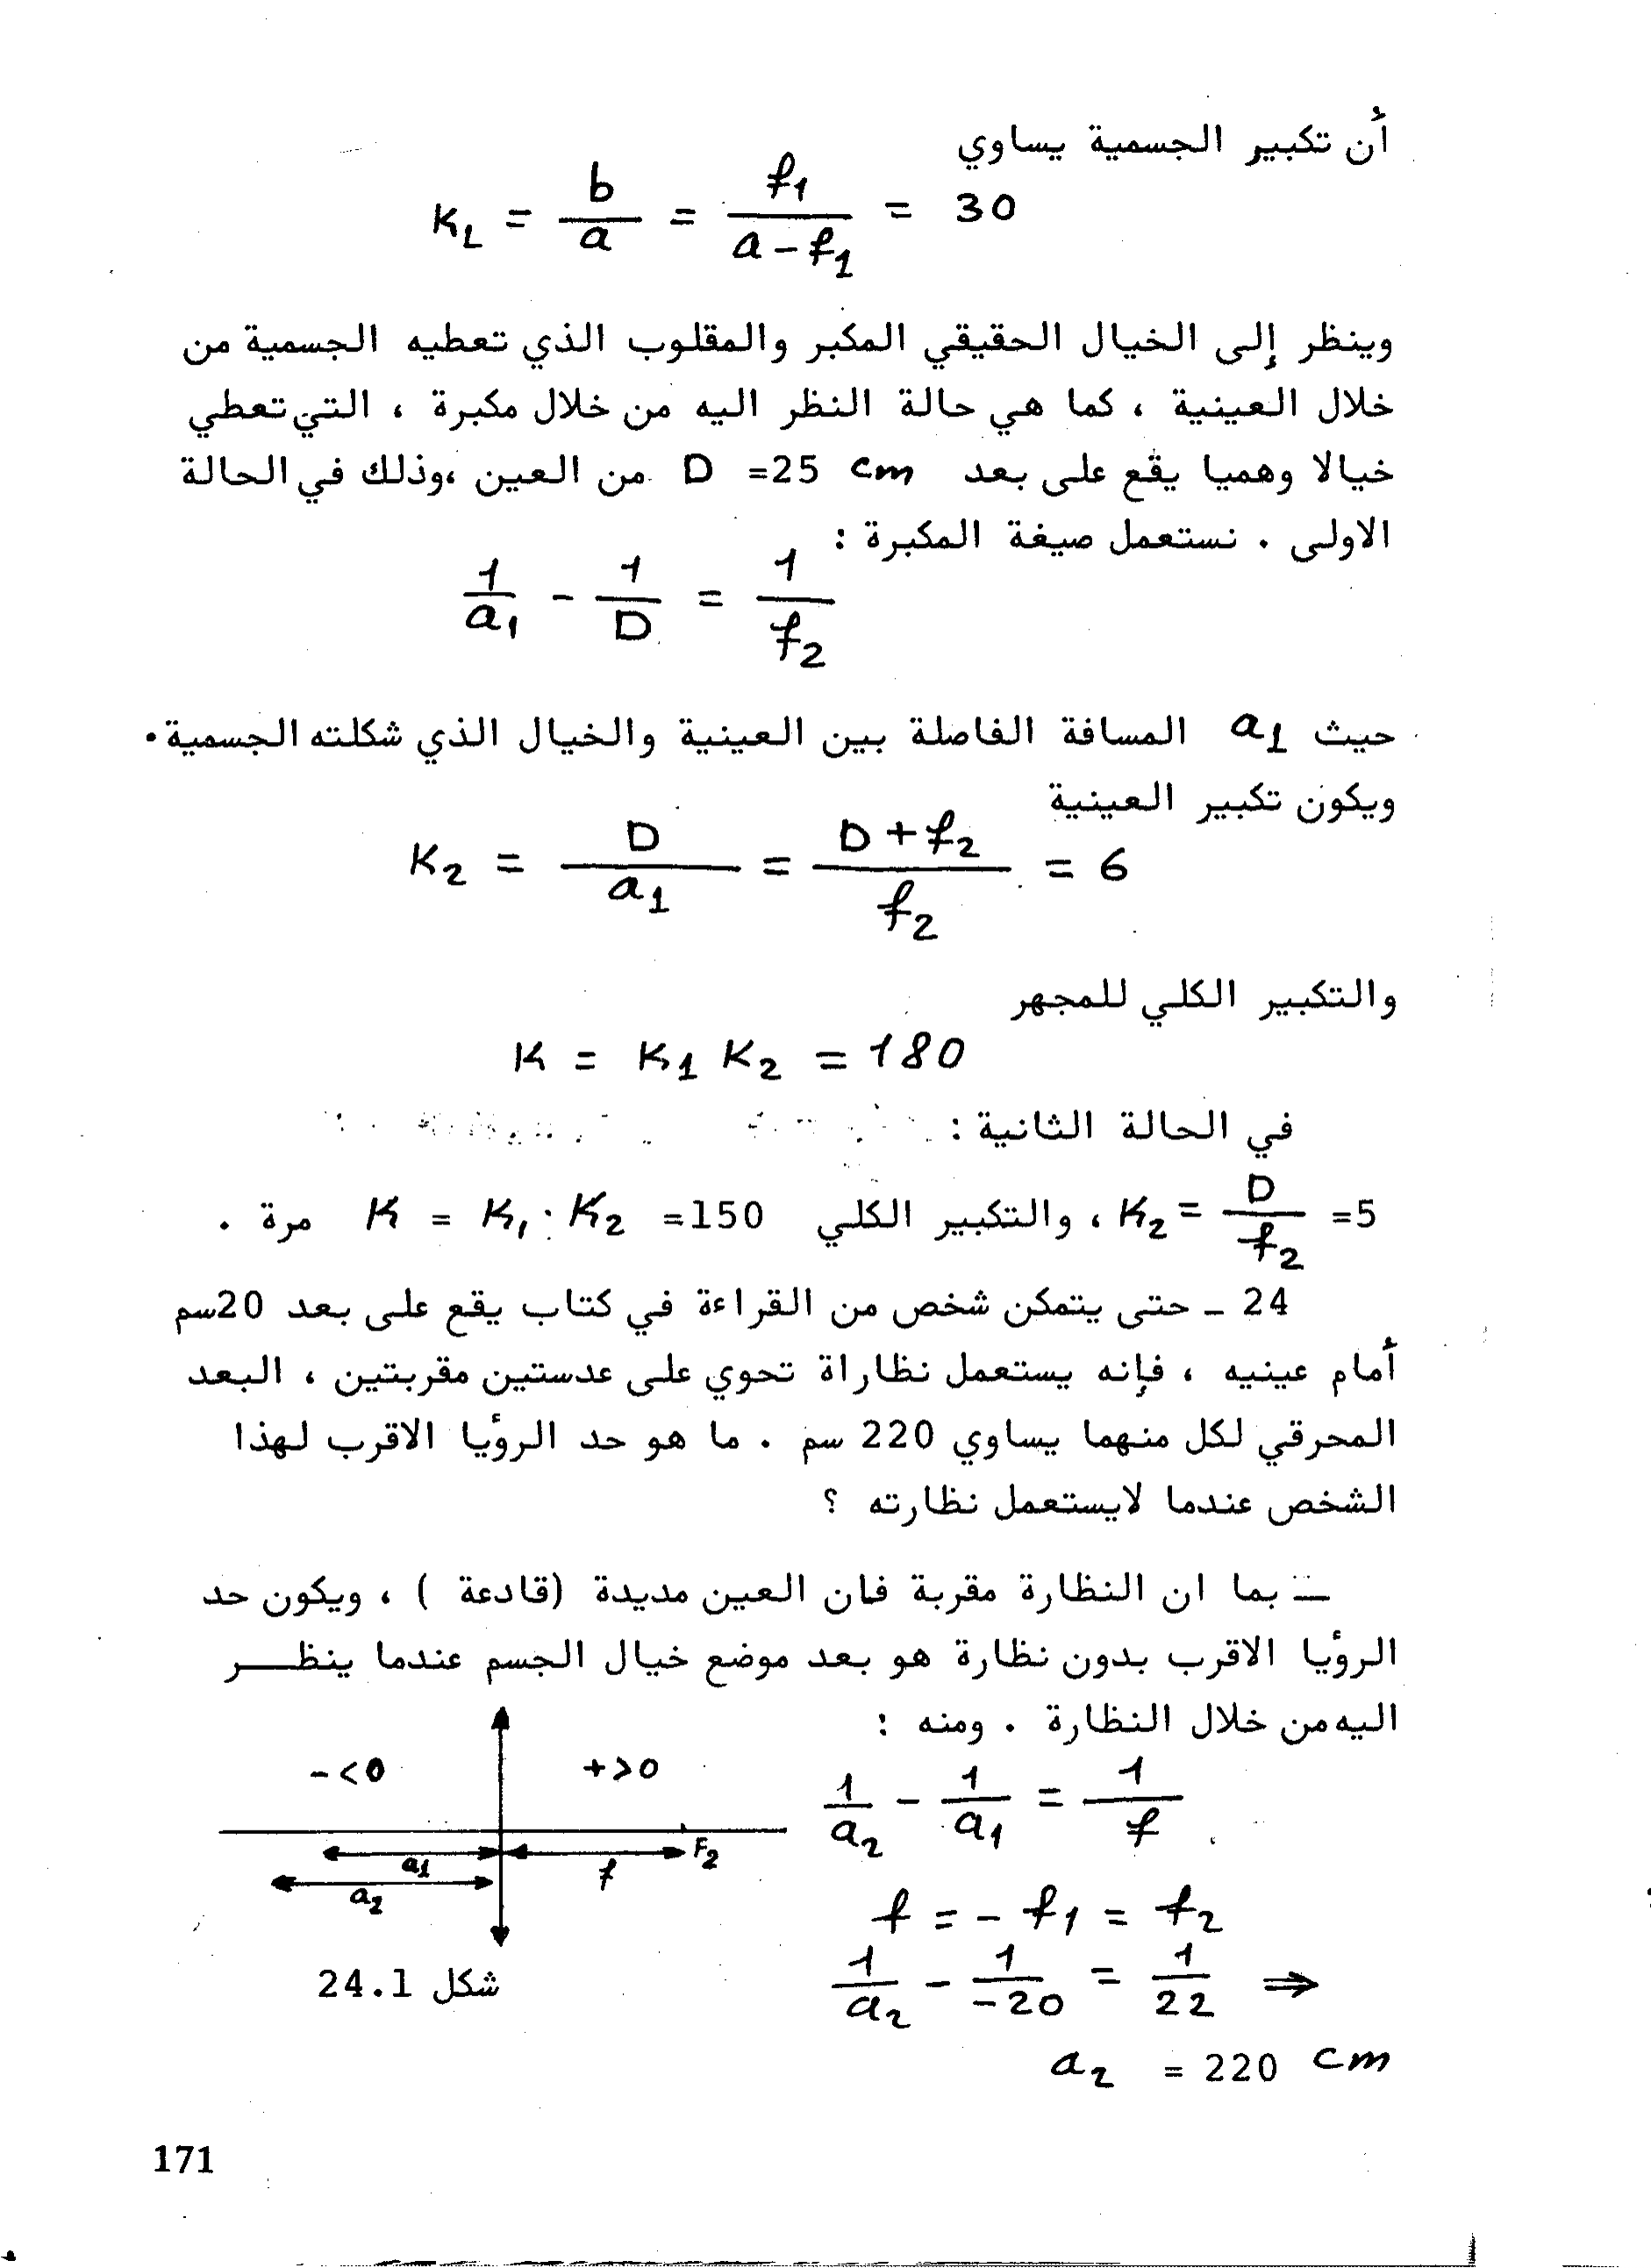 أن تكبير الجسمية يساوي
K_L = b/a = f1/(a - f1) = 30
وينظر إلى الخيال الحقيقي المكبر والمقلوب الذي تعطيه الجسمية من
خلال العينية ، كما هي حالة النظر اليه من خلال مكبرة ، التي تعطي
خيالا وهميا يقع على بعد D =25 cm من العين ،وذلك في الحالة
الاولى . نستعمل صيغة المكبرة :
1/a1 - 1/D = 1/f2
حيث a1 المسافة الفاصلة بين العينية والخيال الذي شكلته الجسمية .
ويكون تكبير العينية
K2 = D/a1 = (D + f2)/f2 = 6
والتكبير الكلي للمجهر
K = K1 K2 = 180
في الحالة الثانية :
K2 = D/f2 =5 ، والتكبير الكلي K = K1 . K2 =150 مرة .
24 ـ حتى يتمكن شخص من القراءة في كتاب يقع على بعد 20سم
أمام عينيه ، فإنه يستعمل نظاراة تحوي على عدستين مقربتين ، البعد
المحرقي لكل منهما يساوي 220 سم . ما هو حد الرؤيا الاقرب لهذا
الشخص عندما لايستعمل نظارته ؟
ـ بما ان النظارة مقربة فان العين مديدة (قادعة ) ، ويكون حد
الرؤيا الاقرب بدون نظارة هو بعد موضع خيال الجسم عندما ينظــر
اليه من خلال النظارة . ومنه :
- <0 + >0
1/a2 - 1/a1 = 1/f
a1 f F2
a2
f = - f1 = f2
1/a2 - 1/-20 = 1/22 ⇒
شكل 24.1
a2 = 220 cm
171